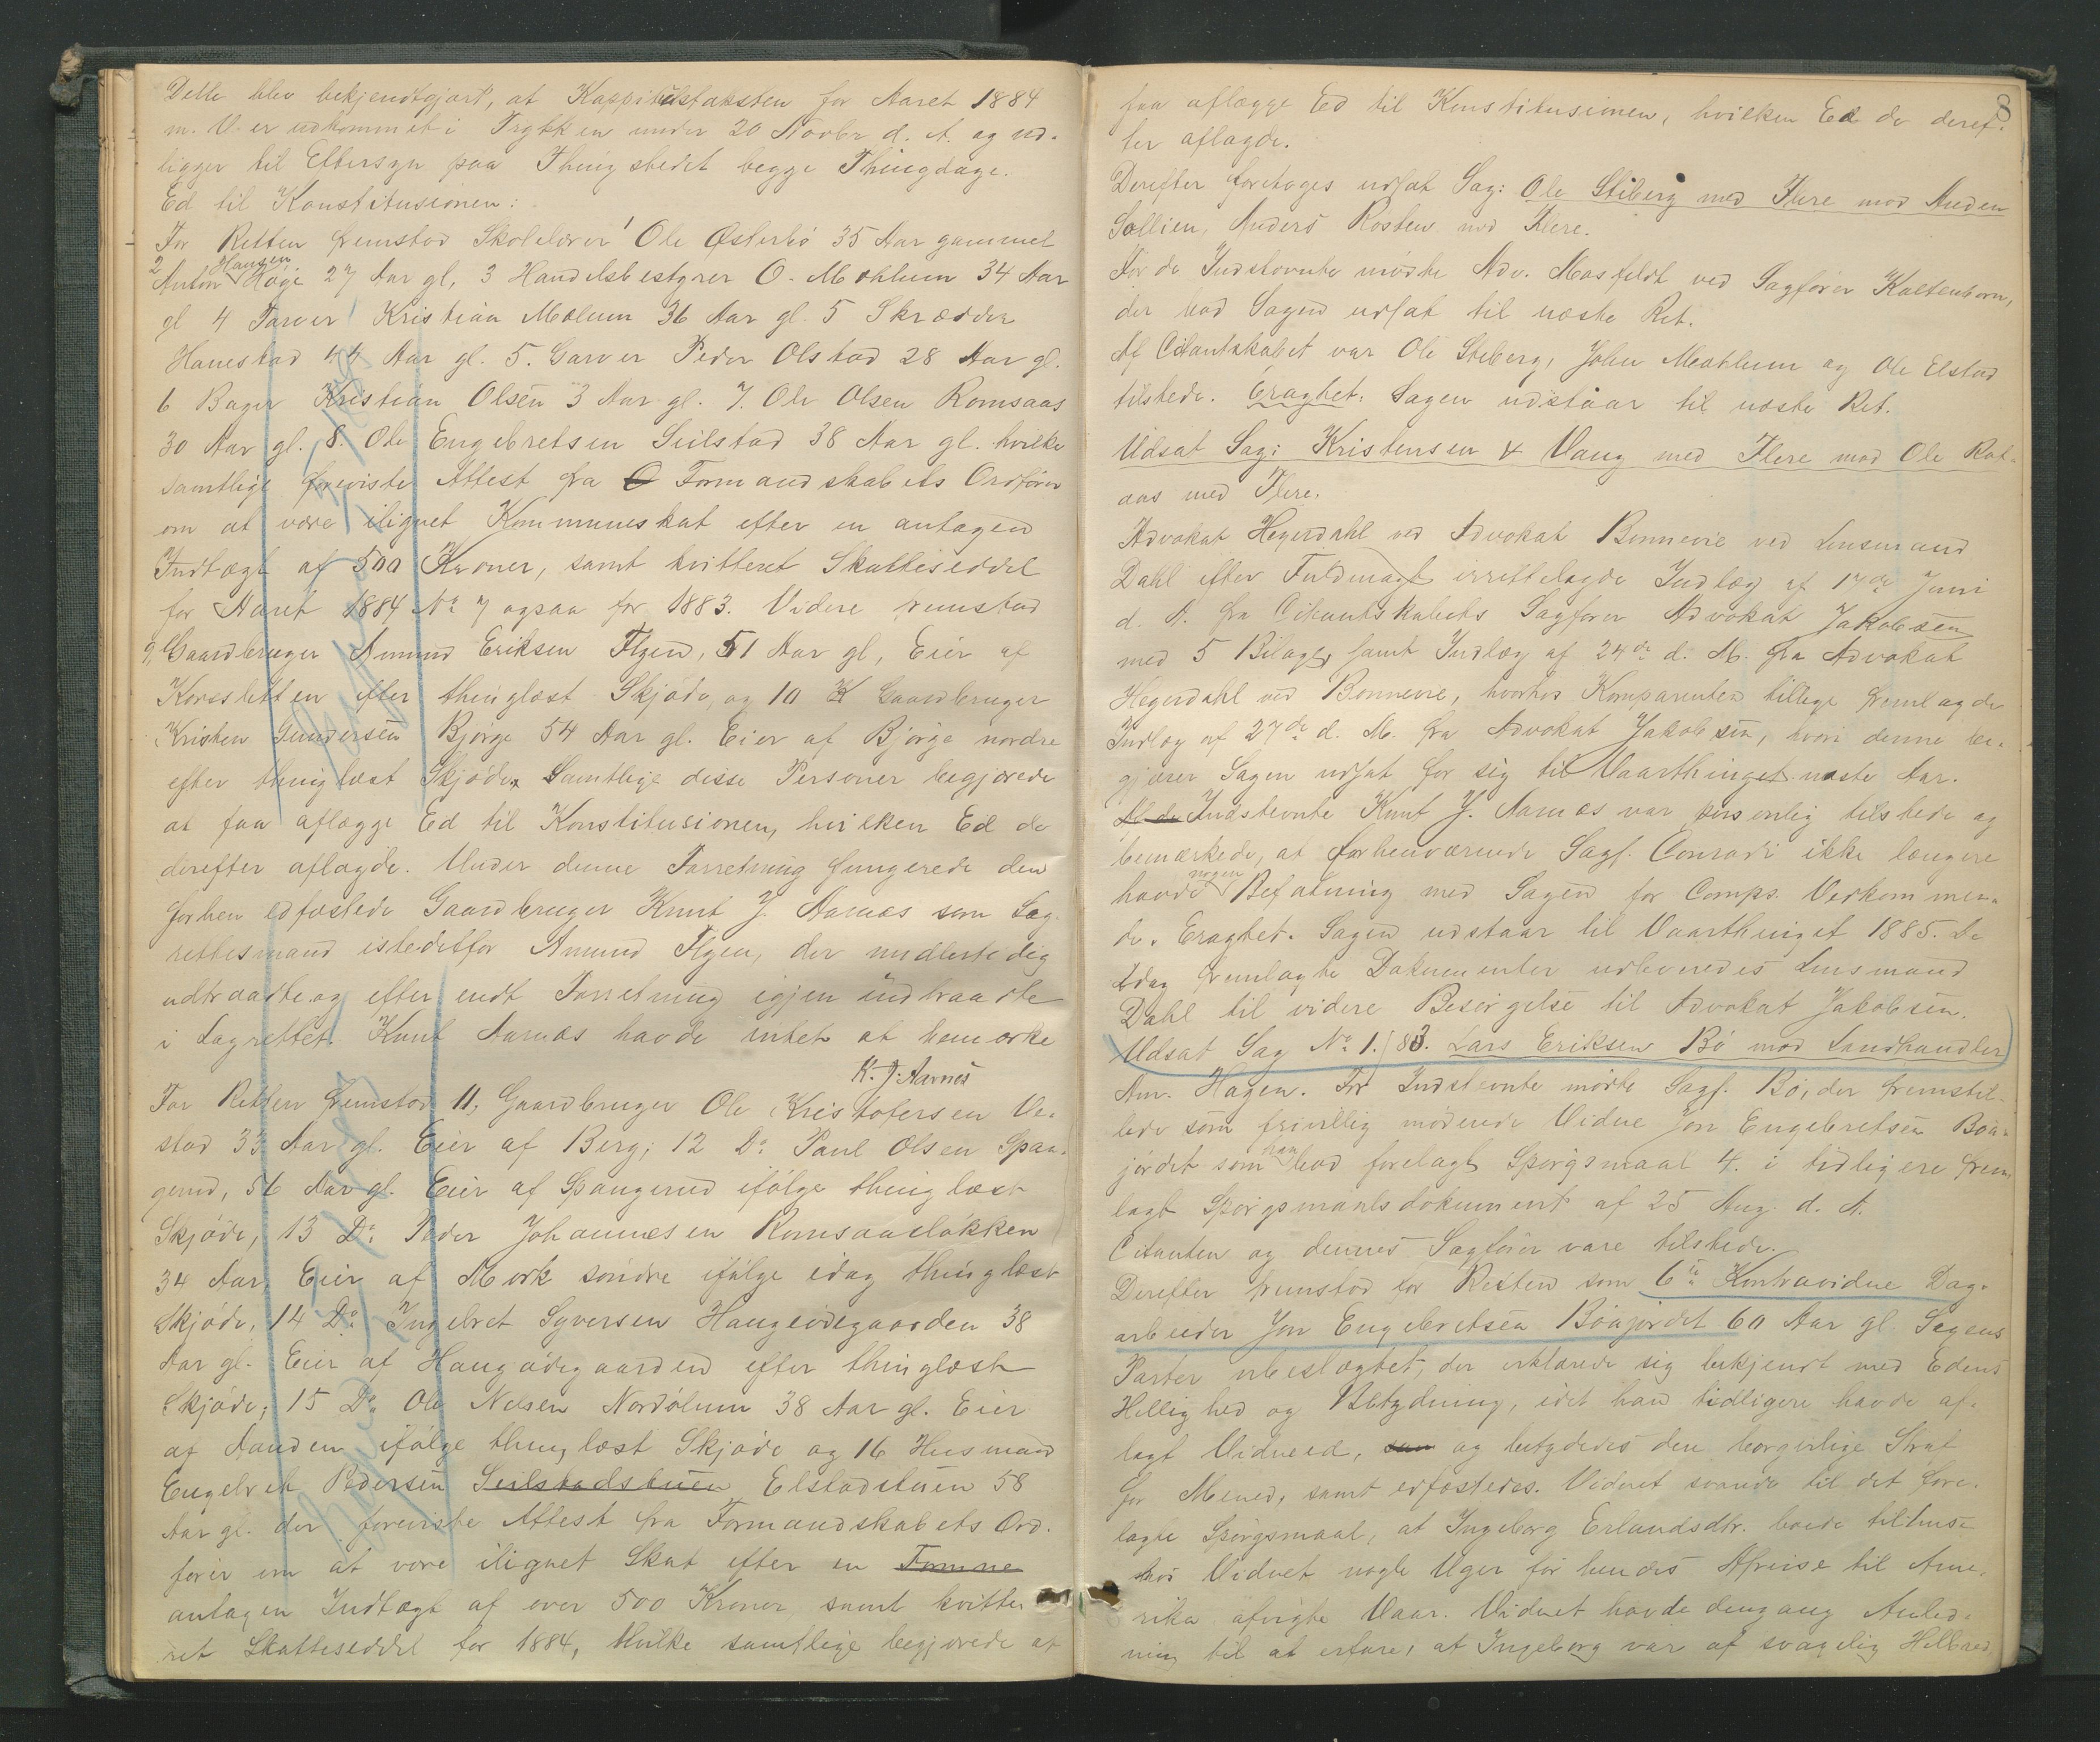 Dette blev bekjendtgjort, at Kappitelstaksten for Aaret 1884
m. V. er udkommet i Trykken under 20 Novbr d. A. og ud-
ligger til Eftersyn paa Thingstedet begge Thingdage.
Ed til Konstitusionen:
For Retten fremstod Skolelærer 1 Ole Østerbø 35 Aar gammel
2 Anton Hansen Hage 27 Aar gl, 3 Handelsbestyrer O. Mæhlum 34 Aar
gl 4 Farver Kristian Mælum 36 Aar gl. 5 Skrædder
Hanestad 44 Aar gl. 5. Garver Peder Olstad 28 Aar gl.
6 Bager Kristian Olsen 3 Aar gl. 7. Ole Olsen Romsaas
30 Aar gl. 8. Ole Engebretsen Seilstad 38 Aar gl. hvilke
samtlige foreviste Attest fra O Formandskabets Ordfører
om at være ilignet Kommuneskat efter en antagen
Indtægt af 500 Kroner, samt kvitteret Skatteseddel
for Aaret 1884 No 7 ogsaa for 1883. Videre fremstod
9, Gaardbruger Amund Eriksen Flyen, 51 Aar gl, Eier af
Korssletten efter thinglæst Skjøde, og 10 K Gaardbruger
Kristen Gundersen Bjørge 54 Aar gl. Eier af Bjørge nordre
efter thinglæst Skjøde. Samtlige disse Personer begjærede
at faa aflægge Ed til Konstitusionen, hvilken Ed de
derefter aflagde. Under denne Forretning fungerede den
forhen edfæstede Gaardbruger Knut J. Aarnæs som Lag-
rettesmand istedetfor Amund Flyen, der midlertidig
udtraadte og efter endt Forretning igjen indtraadte
i Lagrettet. Knut Aarnæs havde intet at bemærke
K. J. Aarnæs
For Retten fremstod 11, Gaardbruger Ole Kristofersen Ve-
stad 33 Aar gl. Eier af Berg; 12 Do Paul Olsen Span-
gerud, 56 Aar gl. Eier af Spangerud ifølge thinglæst
Skjøde, 13 Do Peder Johannesen Romsaasløkken
34 Aar, Eier af Mork søndre ifølge idag thinglæst
Skjøde, 14 Do Ingebret Syversen Haugødegaarden 38
Aar gl. Eier af Haugødegaarden efter thinglæst
Skjøde; 15 Do Ole Nelsen Nordølum 38 Aar gl. Eier
af Aanden ifølge thinglæst Skjøde og 16 Husmand
Engebret Pedersen Seilstadstuen Elstadstuen 58
Aar gl. der foreviste Attest fra Formandskabets Ord-
fører om at være ilignet Skat efter en Formue
antagen Indtægt af over 500 Kroner samt kvitte-
ret Skatteseddel for 1884, Hvilke samtlige begjærede at
8
faa aflægge Ed til Konstitusionen, hvilken Ed de deref-
ter aflagde.
Derefter foretoges udsat Sag: Ole Stiberg med Flere mod Auden
Sollien, Anders Rosten med Flere.
For de Indstevnte mødte Adv. Masfeldt ved Sagfører Kaltenborn,
der bad Sagen udsat til næste Ret.
Af Citantskabet var Ole Stiberg, John Mæhlum og Ole Elstad
tilstede. Eragtet. Sagen udstaar til næste Ret.
Udsat Sag: Kristensen & Vang med Flere mod Ole Rot-
aas med Flere.
Advokat Hegerdahl ved Advokat Bonnevie ved Lensmand
Dahl efter Fuldmagt irettelagde Indlæg af 17de Juni
d. A. fra Citantskabets Sagfører Advokat Jakobsen
med 5 Bilage, samt Indlæg af 24de d. M. fra Advokat
Hegerdahl ved Bonnevie, hvorhos Komparenten tillige fremlagde
Indlæg af 27de d. M. fra Advokat Jakobsen, hvori denne be-
gjærer Sagen udsat for sig til Vaarthinget næste Aar.
Af de Indstevnte Knut J. Aarnæs var personlig tilstede og
bemærkede, at forhenværende Sagf. Conradi ikke længere
havde nogen Befatning med Sagen for Comps. Vedkommen-
de. Eragtet. Sagen udstaar til Vaarthinget 1885. De
idag fremlagte Dokumenter udleveredes Lensmand
Dahl til videre Besørgelse til Advokat Jakobsen.
Udsat Sag No 1./83. Lars Eriksen Bø mod Landhandler
Am. Hagen. For Indstevnte mødte Sagf. Bø, der fremstil-
lede som frivillig mødende Vidne Jon Engebretsen Böa-
jordet som han bad forelagt Spørgsmaal 4. i tidligere frem-
lagt Spørgsmaalsdokument af 25 Aug. d. A.
Citanten og dennes Sagfører vare tilstede.
Derefter fremstod for Retten som 6te Kontravidne Dag-
arbeider Jon Engebretsen Böajordet 60 Aar gl. Sagens
Parter ubeslægtet, der erklærede sig bekjendt med Edens
Hellighed og Betydning, idet han tidligere havde af-
lagt Vidneed, som og betydedes den borgerlige Straf
for Mened, samt edfæstedes. Vidnet svarede til det fore-
lagte Spørgsmaal, at Ingeborg Erlandsdtr. boede tilhuse
hos Vidnet nogle Uger før hendes Afreise til Ame-
rika afvigte Vaar. Vidnet havde dengang Anled-
ning til at erfare, at Ingeborg var af svagelig Helbred